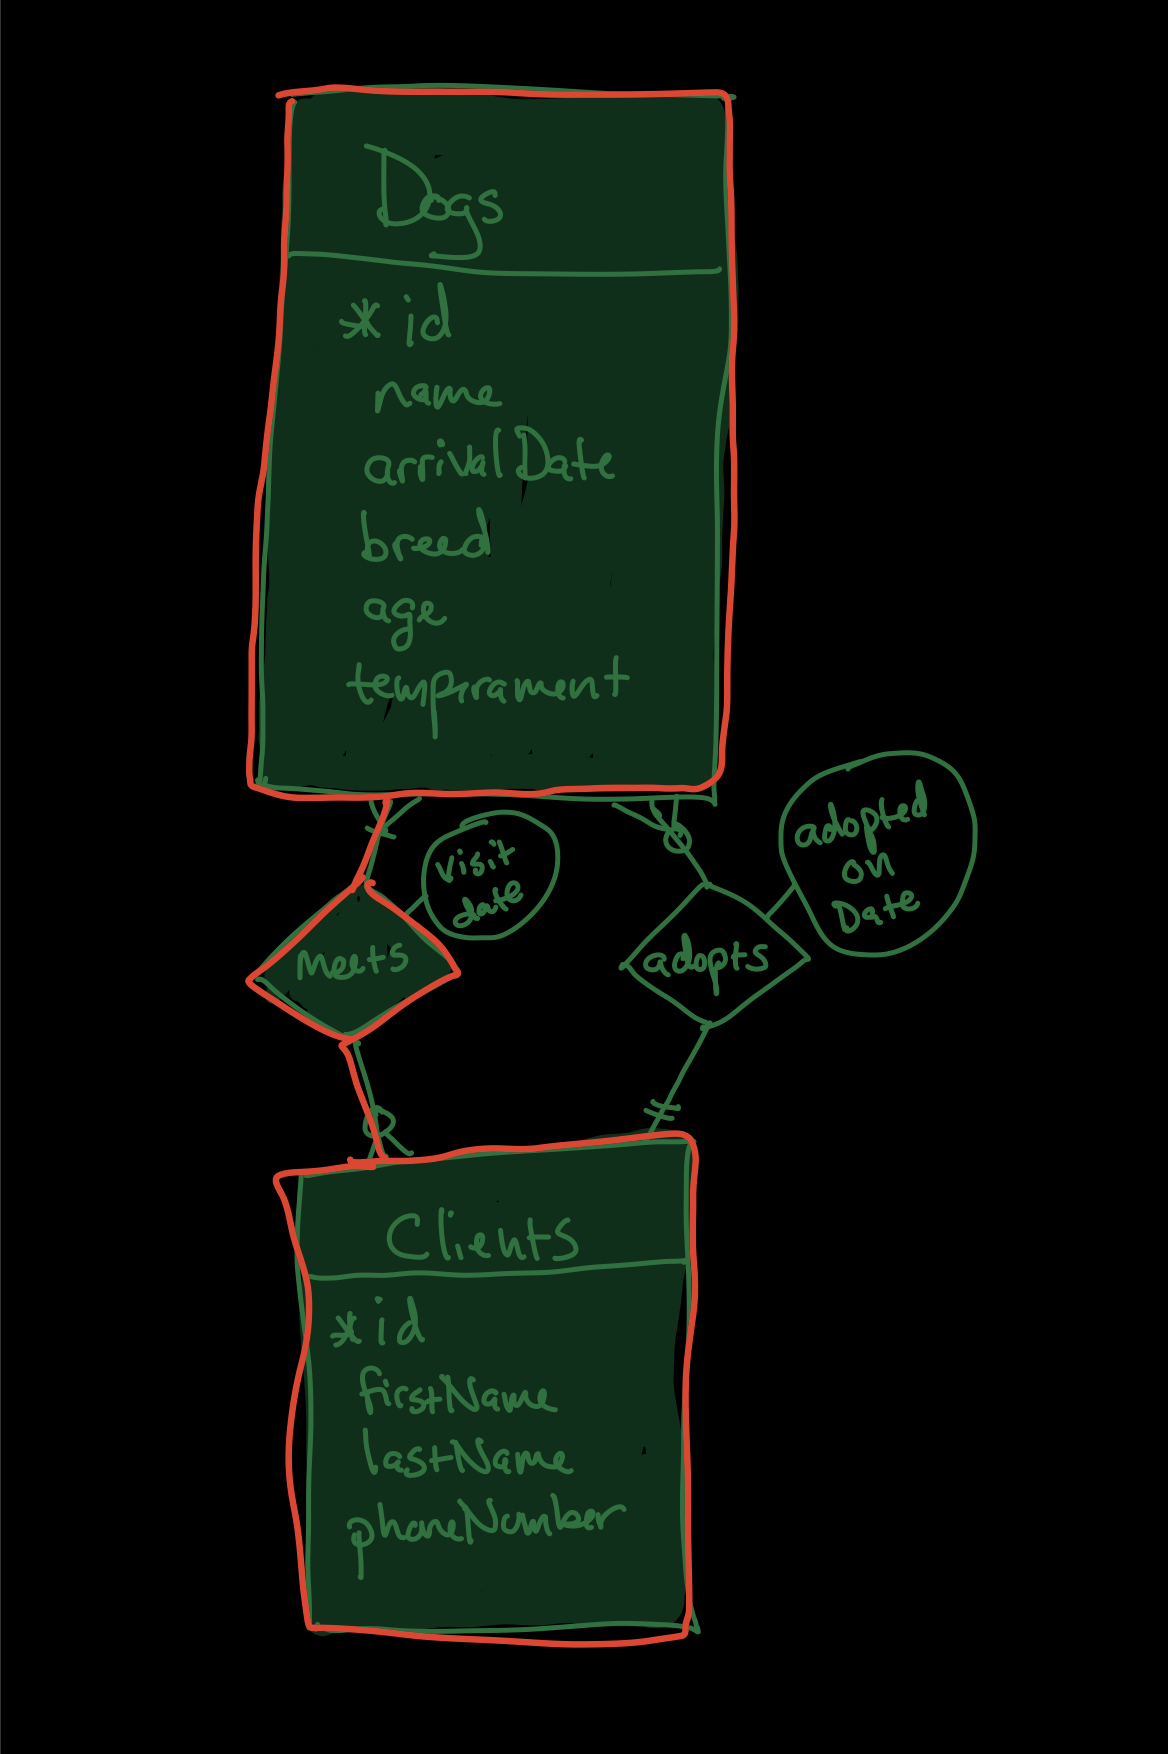 Dogs
* id
name
arrivalDate
breed
age
temprament
visit
date
adopted
on
Date
Meets
adopts
Clients
* id
firstName
lastName
phoneNumber